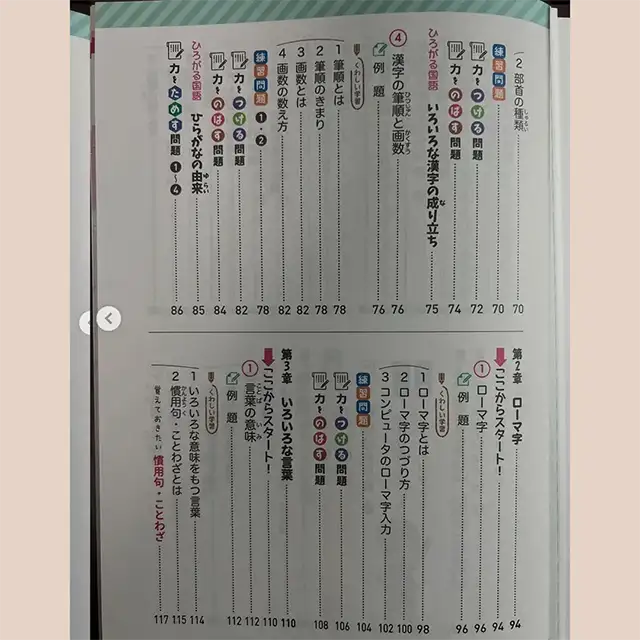 2 部首の種類 しゅるい 70
練習問題 70
力をつける問題 72
力をのばす問題 74
ひろがる国語 いろいろな漢字の成り立ち な 75
④ 漢字の筆順と画数 ひつじゅん かくすう 76
例題 76
くわしい学習
1 筆順とは 78
2 筆順のきまり 78
3 画数とは 82
4 画数の数え方 82
練習問題 ❶・❷ 78
力をつける問題 82
力をのばす問題 84
ひろがる国語 ひらがなの由来 ゆらい 85
力をためす問題 ❶〜❹ 86
第2章 ローマ字 94
ここからスタート! 94
① ローマ字 96
例題 96
くわしい学習
1 ローマ字とは 98
2 ローマ字のつづり方 100
3 コンピュータのローマ字入力 102
練習問題 104
力をつける問題 106
力をのばす問題 108
第3章 いろいろな言葉 110
ここからスタート! 110
① 言葉の意味 ことば いみ 112
例題 112
くわしい学習
1 いろいろな意味をもつ言葉 114
2 慣用句・ことわざとは かんようく 115
覚えておきたい 慣用句・ことわざ 117